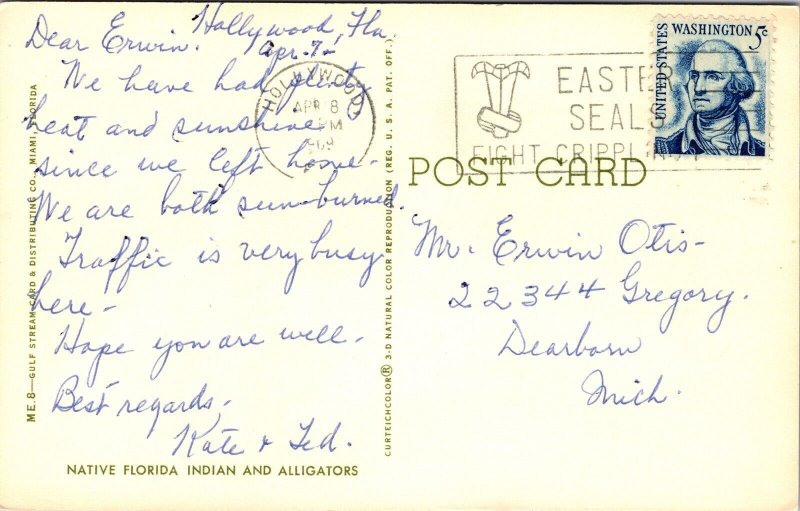 Hollywood, Fla.
Apr. 7-
Dear Erwin.
We have had plenty
heat and sunshine
since we left home-
We are both sun-burned.
Traffic is very busy
here-
Hope you are well-
Best regards,
Kate & Ted.
NATIVE FLORIDA INDIAN AND ALLIGATORS
ME.8—GULF STREAM CARD & DISTRIBUTING CO., MIAMI, FLORIDA
CURTEICHCOLOR® 3-D NATURAL COLOR REPRODUCTION (REG. U. S. A. PAT. OFF.)
HOLLYWOOD
APR 8
PM
1969
EASTE
SEALS
FIGHT CRIPPLING
UNITED STATES
WASHINGTON 5c
POST CARD
Mr. Erwin Otis-
22344 Gregory.
Dearborn
Mich.